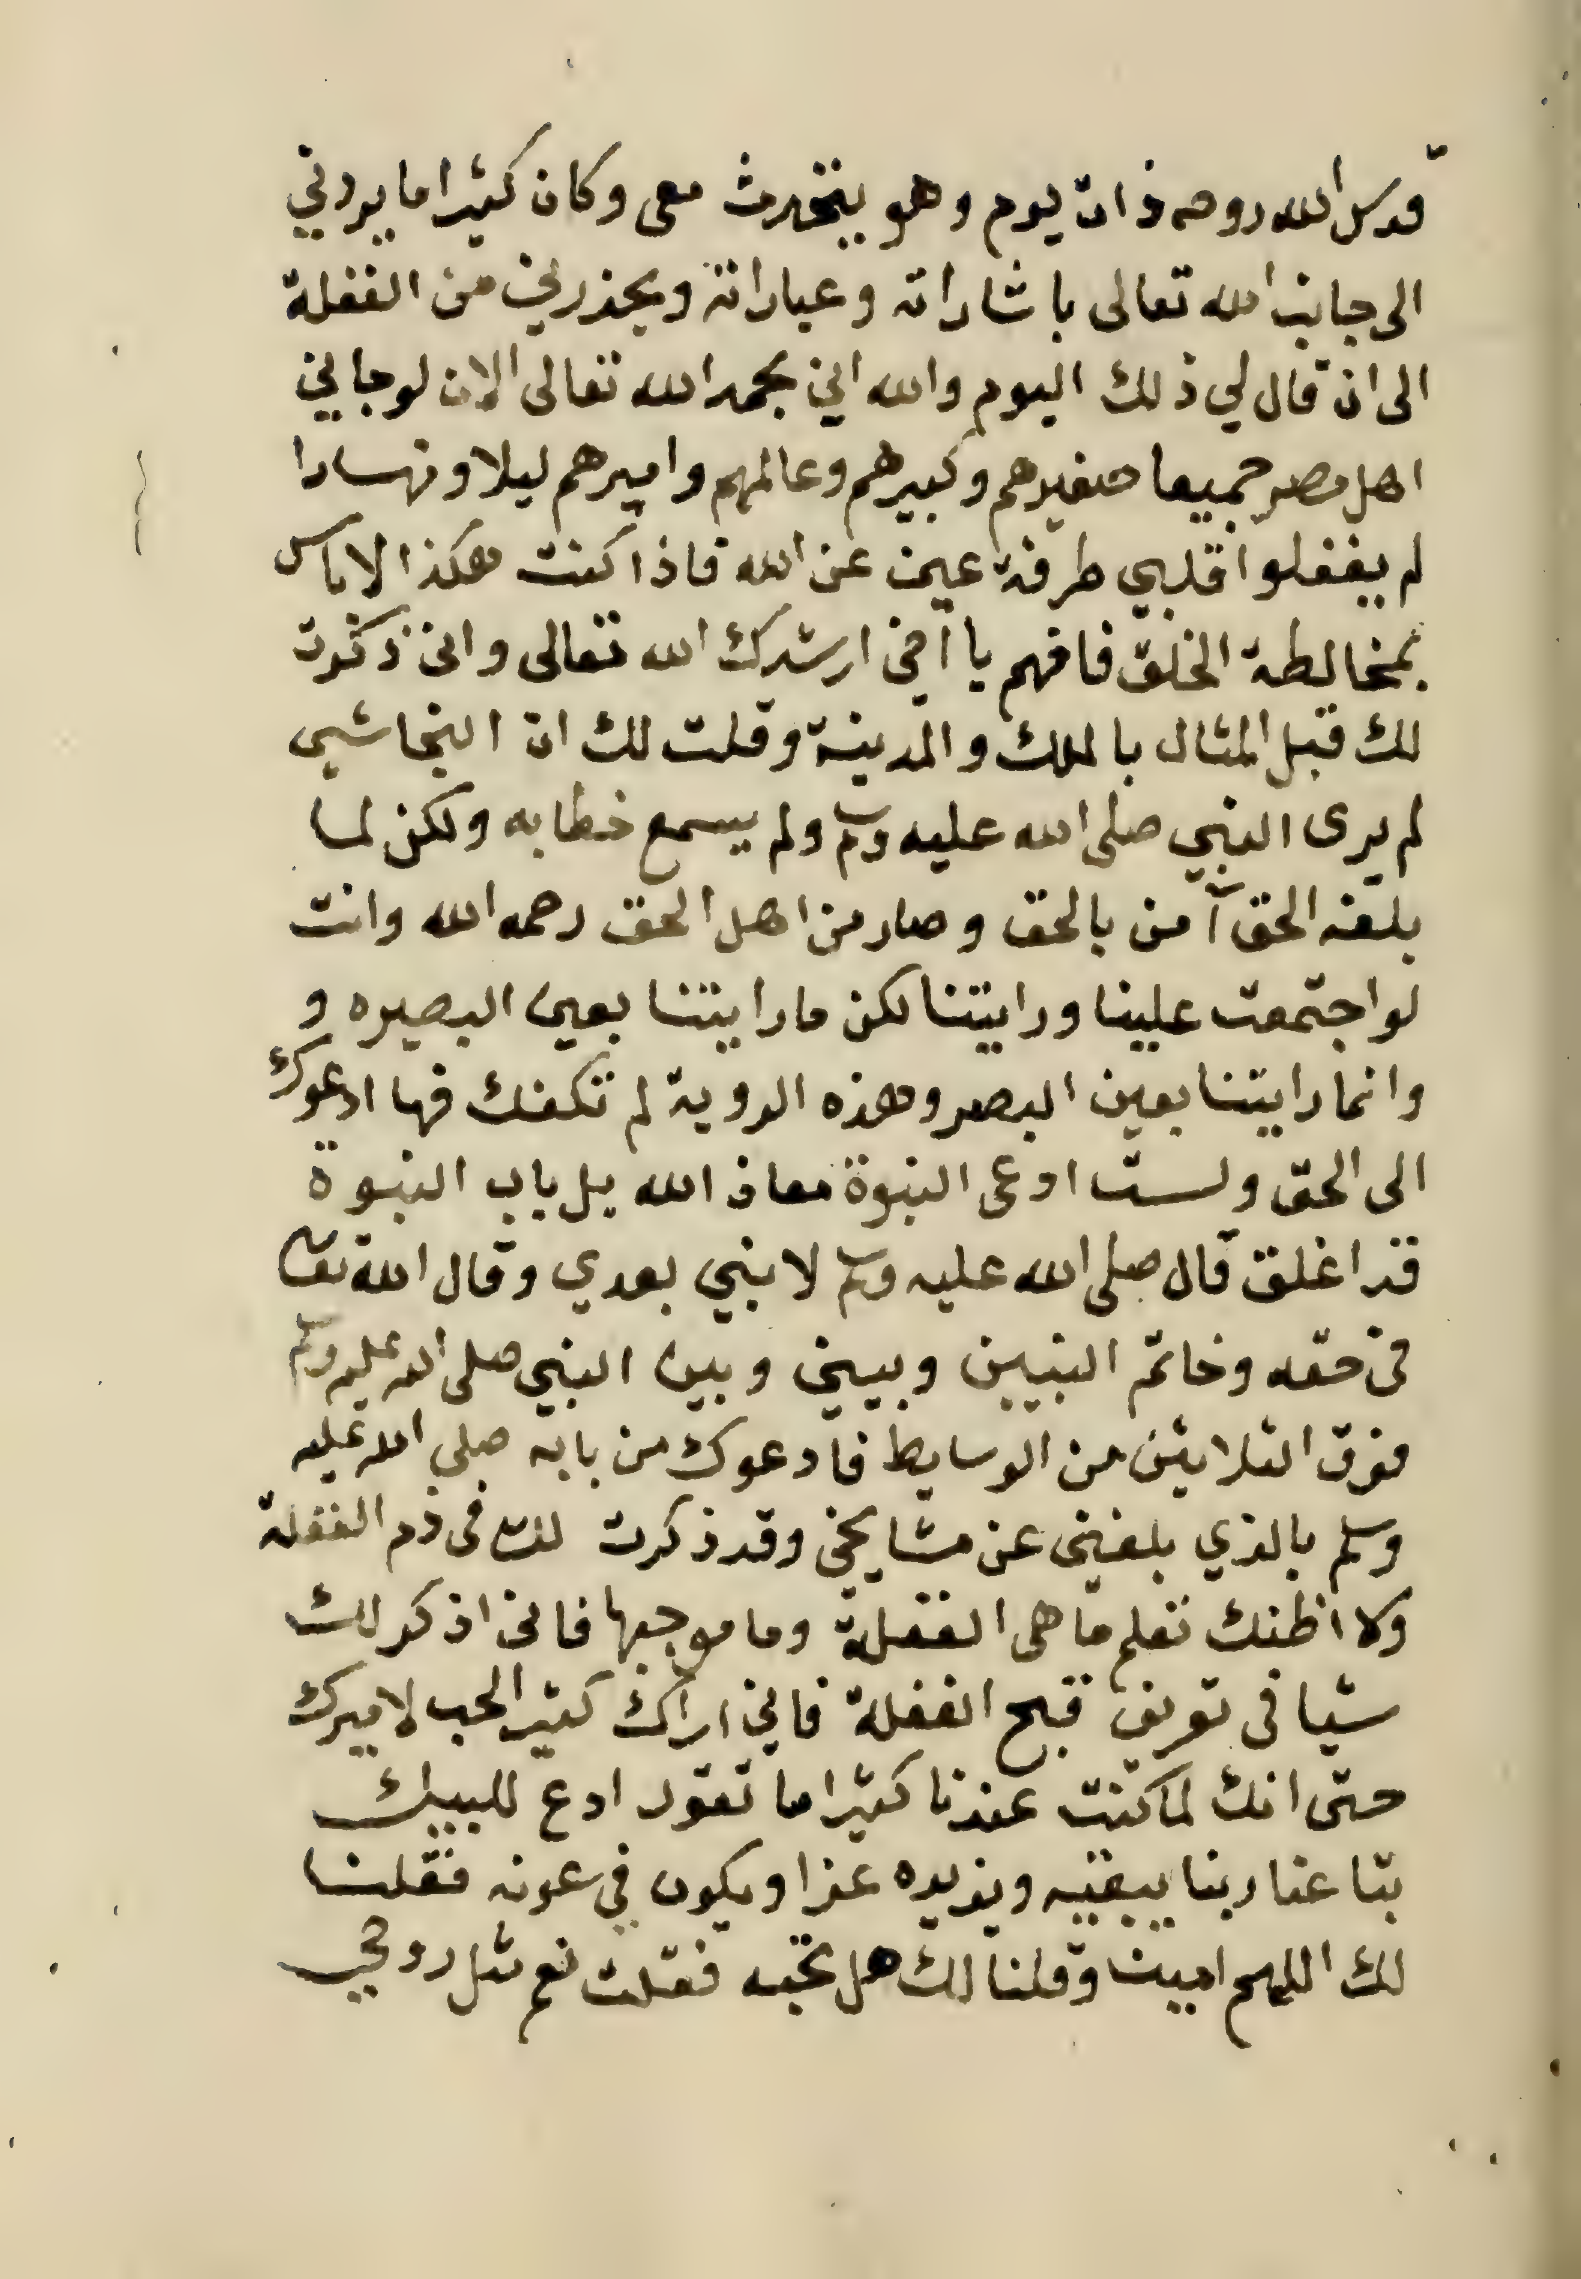 قدس الله روحه ذات يوم وهو يتحدث معى وكان كثيرا ما يردني
الى جانب الله تعالى باشاراته وعباراته ويحذرني من الغفلة
الى ان قال لي ذلك اليوم والله اني بحمد الله تعالى الان لو جاني
اهل مصر جميعا صغيرهم وكبيرهم وعالمهم واميرهم ليلا ونهارا
لم يغفلوا قلبي طرفة عين عن الله فاذا كنت هكذا لا باس
بمخالطة الخلق فافهم يا اخي ارشدك الله تعالى وانى ذكرت
لك قبل المثال بالملك والمدينة وقلت لك ان النجاشي
لم يرى النبي صلى الله عليه وسلم ولم يسمع خطابه ولكن لما
بلغه الحق آمن بالحق وصار من اهل الحق رحمه الله وانت
لو اجتمعت علينا ورايتنا لكن ما رايتنا بعين البصيره و
وانما رايتنا بعين البصر وهذه الروية لم تكفك فها ادعوك
الى الحق ولست ادعى النبوة معاذ الله بل باب النبوة
قد اغلق قال صلى الله عليه وسلم لا نبي بعدي وقال الله تعا
فى حقه وخاتم النبيين وبيني وبين النبي صلى الله عليه وسلم
فوق الثلاثين من الوسايط فادعوك من بابه صلى الله عليه
وسلم بالذي بلغنى عن مشايخى وقد ذكرت لك فى ذم الغفلة
ولا اظنك تعلم ما هى الغفلة وما موجبها فانى اذكر لك
شيا فى تعريف قبح الغفلة فاني اراك كثير الحب لاميرك
حتى انك لما كنت عندنا كثيرا ما تقول ادع للبيك
بتاعنا ربنا يبقيه ويزيده عزا ويكون في عونه فقلنا
لك اللهم امين وقلنا لك هل تحبه فقلت نعم مثل روحي